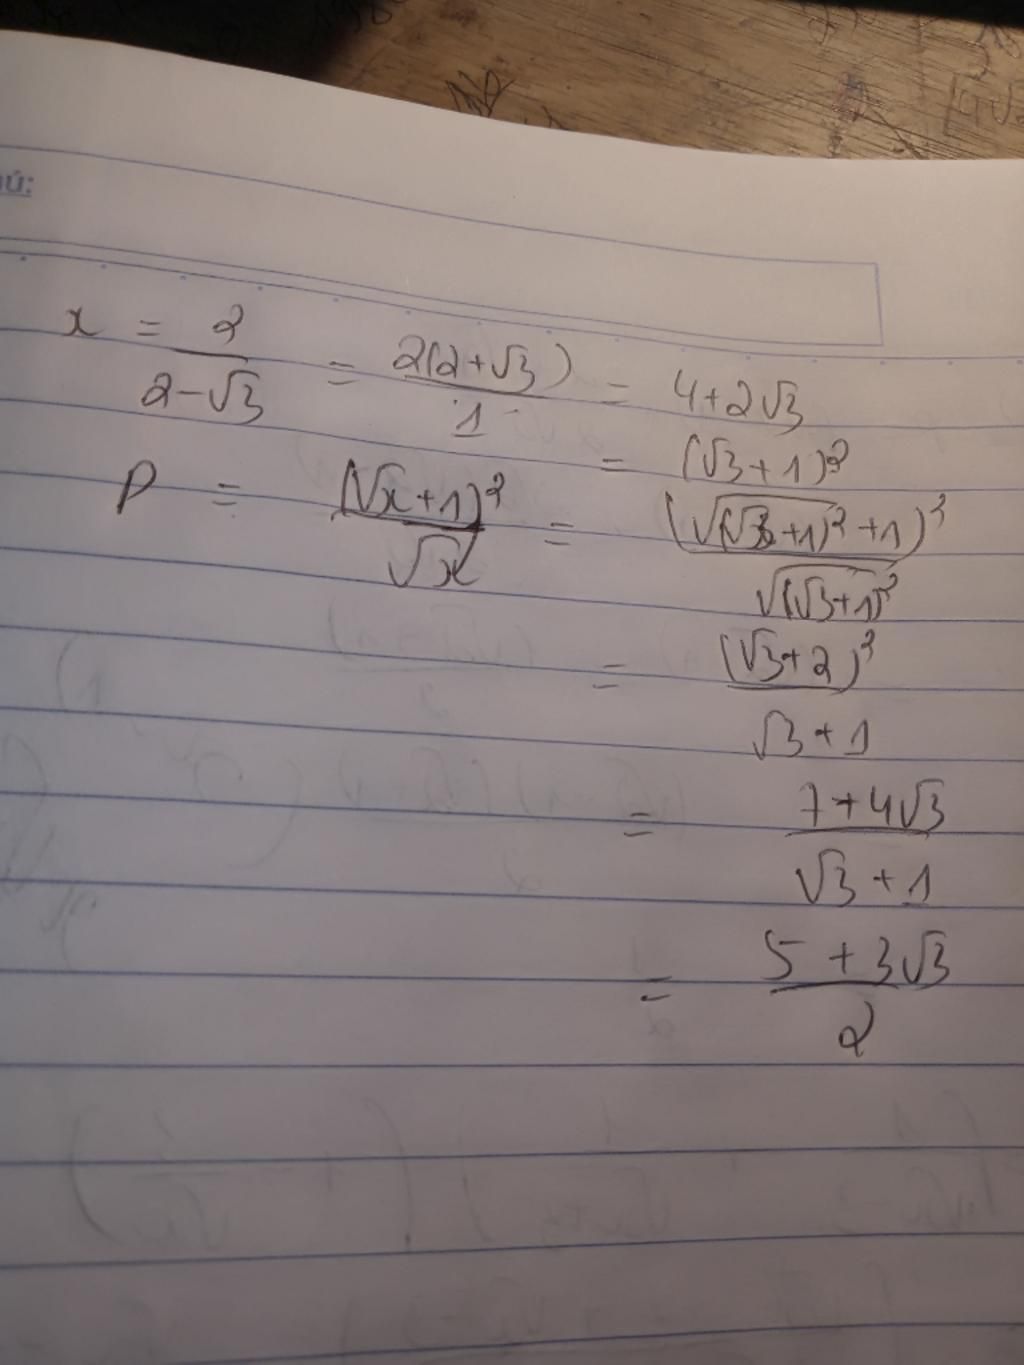 ú:
x = 2/(2-√3) = 2(2+√3)/1 = 4+2√3
= (√3+1)²
P = (√x+1)²/√x = (√(√3+1)²+1)²/√(√3+1)²
= (√3+2)²/(√3+1)
= (7+4√3)/(√3+1)
= (5+3√3)/2